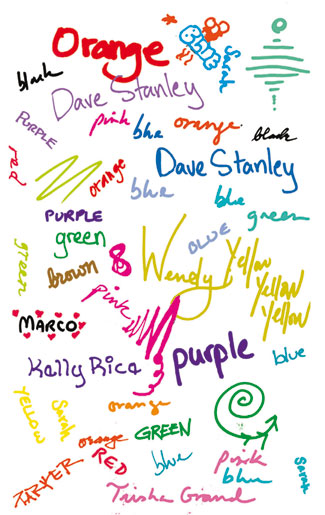 Orange
BLUE
Sarah
black
Dave Stanley
PURPLE
pink
blue
orange
black
red
orange
Dave Stanley
blue
blue
PURPLE
green
green
BLUE
green
brown
Wendy
Yellow
Yellow
Yellow
pink
MARCO
purple
Kelly Rice
blue
YELLOW
Sarah
orange
orange
GREEN
RED
blue
pink
blue
Sarah
PARKER
Trisha Grand